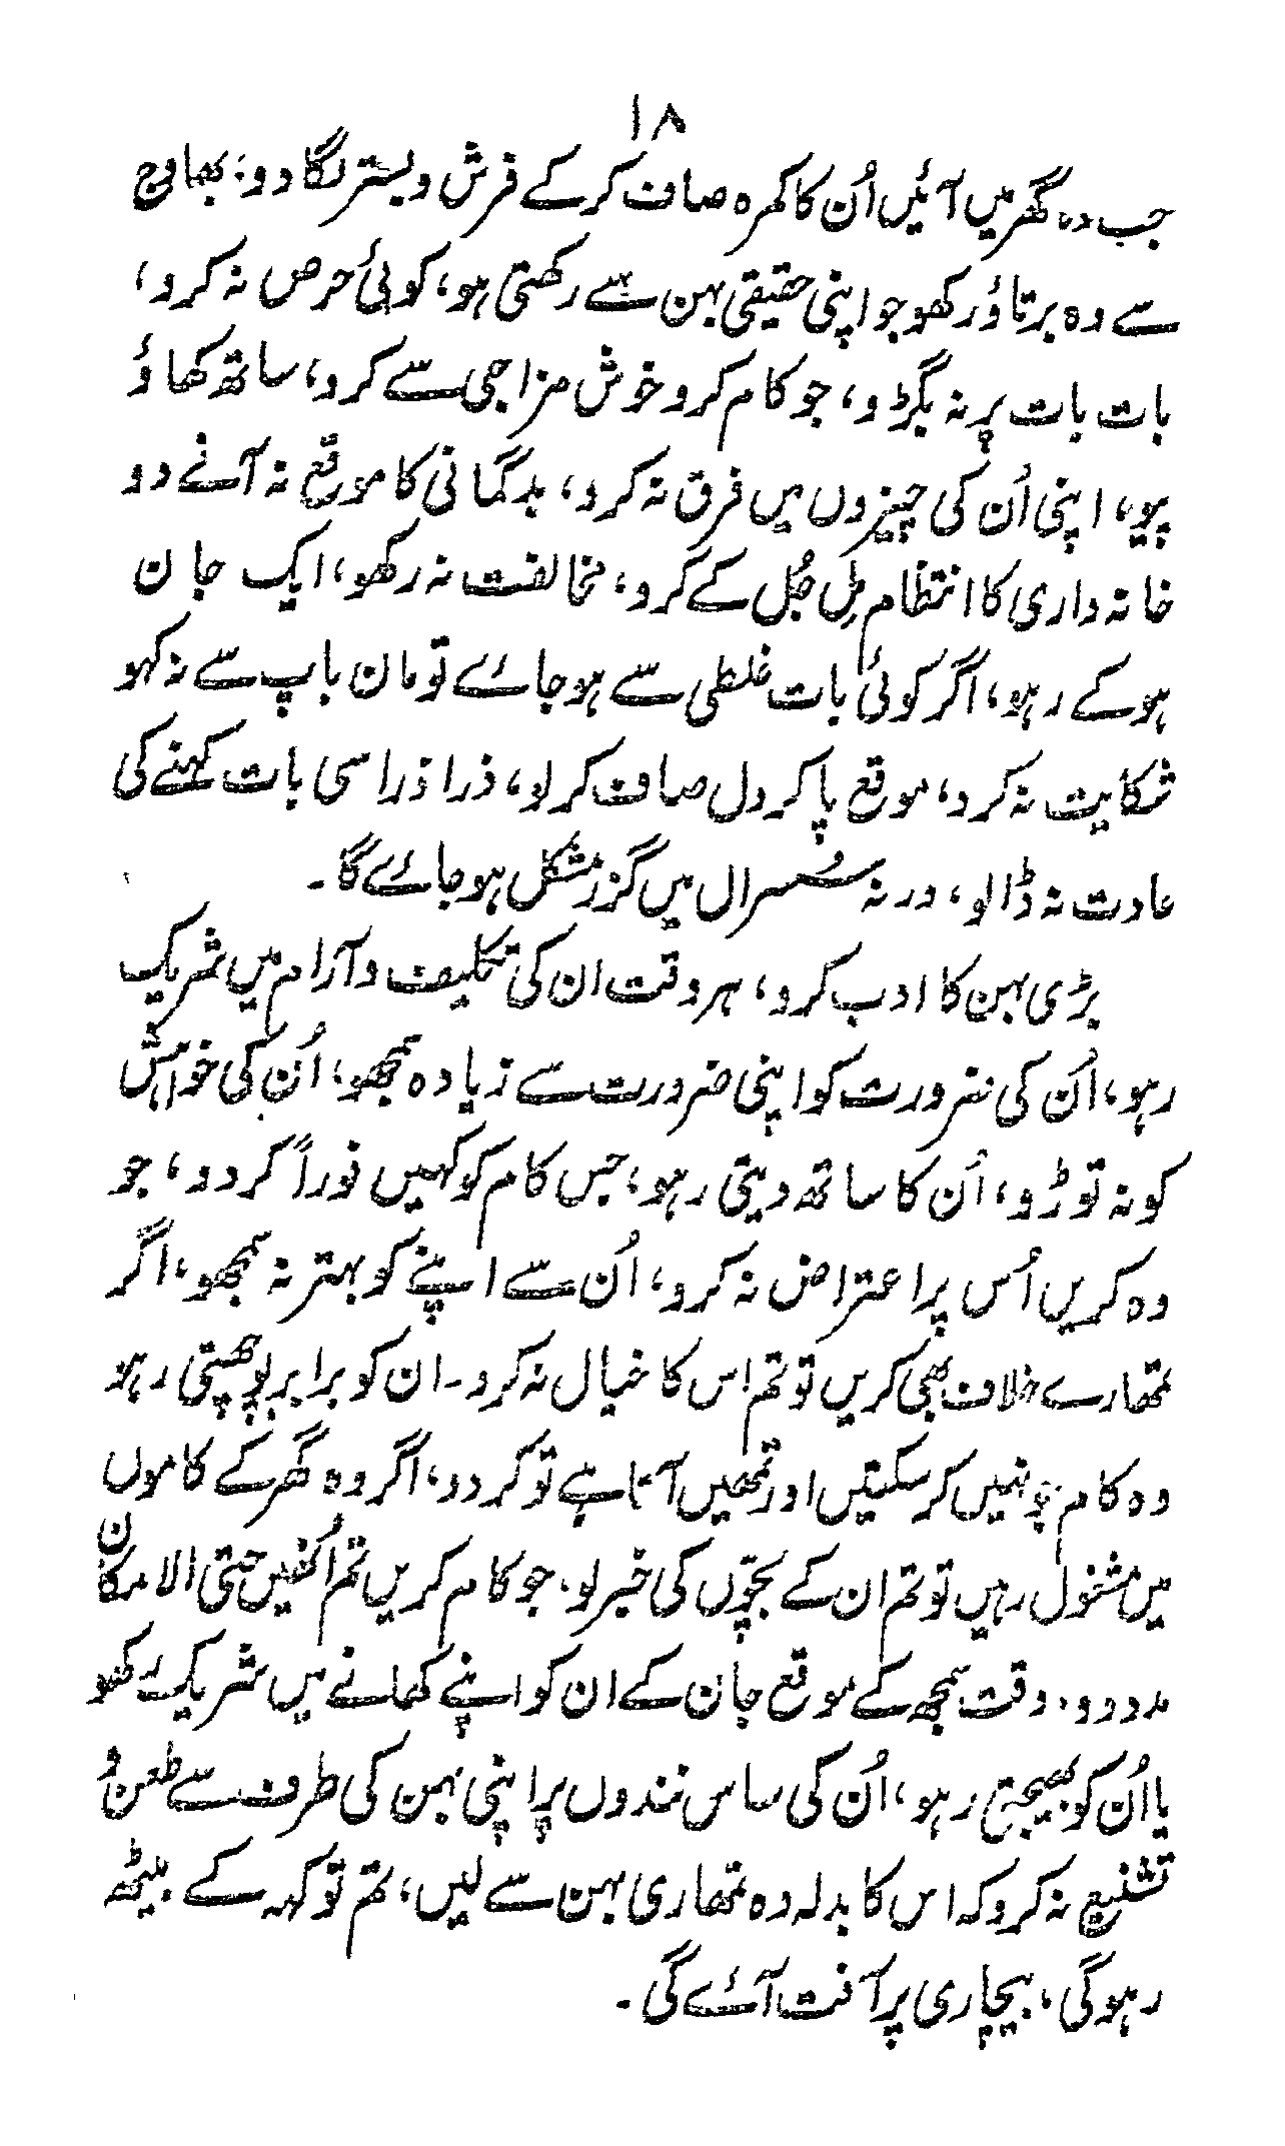 ۱۸
جب وہ گھر میں آئیں اُن کا کمرہ صاف کر کے فرش و بستر لگا دو، بھاوج
سے وہ برتاؤ رکھو جو اپنی حقیقی بہن سے رکھتی ہو، کوئی حرص نہ کرو،
بات بات پر نہ بگڑو، جو کام کرو خوش مزاجی سے کرو، ساتھ کھاؤ
پیو، اپنی اُن کی چیزوں میں فرق نہ کرو، بدگمانی کا موقع نہ آنے دو
خانہ داری کا انتظام مِل جُل کے کرو، مخالفت نہ رکھو، ایک جان
ہو کے رہو، اگر کوئی بات غلطی سے ہو جائے تو مان باپ سے نہ کہو
شکایت نہ کرو، موقع پا کر دل صاف کر لو، ذرا ذرا سی بات کہنے کی
عادت نہ ڈالو، ورنہ سُسرال میں گزر مشکل ہو جائے گا۔
بڑی بہن کا ادب کرو، ہر وقت ان کی تکلیف و آرام میں شریک
رہو، اُن کی ضرورت کو اپنی ضرورت سے زیادہ سمجھو، اُن کی خواہش
کو نہ توڑو، اُن کا ساتھ دیتی رہو، جس کام کو کہیں فوراً کر دو، جو
وہ کریں اُس پر اعتراض نہ کرو، اُن سے اپنے کو بہتر نہ سمجھو، اگر
تمھارے خلاف بھی کریں تو تم اس کا خیال نہ کرو۔ ان کو برابر پوچھتی رہو
وہ کام جو نہیں کر سکتیں اور تمھیں آتا ہے تو کر دو، اگر وہ گھر کے کاموں
میں مشغول رہیں تو تم ان کے بچّوں کی خبر لو، جو کام کریں تم اُنھیں حتی الامکان
مدد دو، وقت سمجھ کے موقع جان کے ان کو اپنے کھانے میں شریک رکھو
یا اُن کو بھیجتی رہو، اُن کی ساس نندوں پر اپنی بہن کی طرف سے طعن و
تشنیع نہ کرو کہ اس کا بدلہ وہ تمھاری بہن سے لیں، تم تو کہہ کے بیٹھ
رہو گی، بیچاری پر آفت آئے گی۔